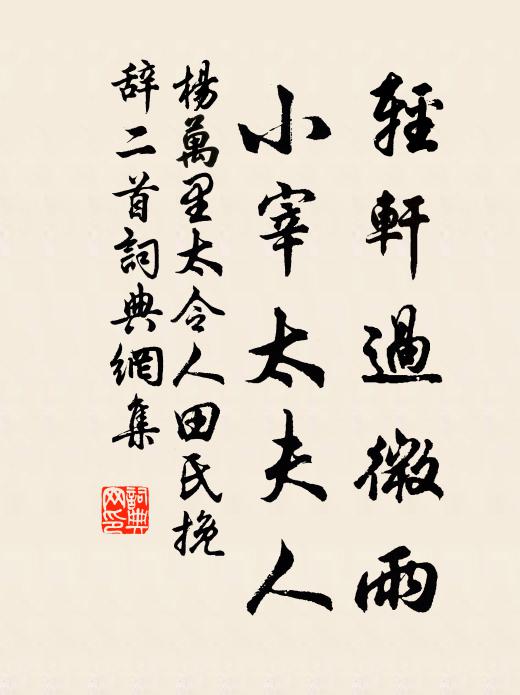 輕軒過微雨
小宰太夫人
楊萬里太令人田氏挽
辞二首詞典網集
詞典
网印